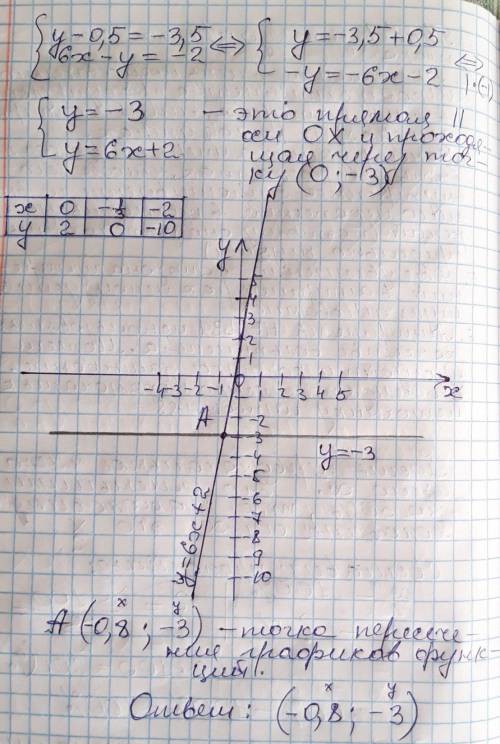 { y - 0,5 = -3,5 ⇔ { y = -3,5 + 0,5
6x - y = -2 -y = -6x - 2 ⇔
| · (-1)
{ y = -3 - это прямая ||
оси OX и проходя-
y = 6x + 2 щая через точ-
ку (0; -3)
x 0 -1/3 -2
y 2 0 -10
y
5
4
3
2
1
0
-4 -3 -2 -1 1 2 3 4 5 x
A
-2
-3
y = -3
-4
-5
-6
-7
-8
-9
-10
y = 6x + 2
x y
A (-0,8; -3) - точка пересече-
ния графиков функ-
ций.
x y
Ответ: (-0,8; -3)